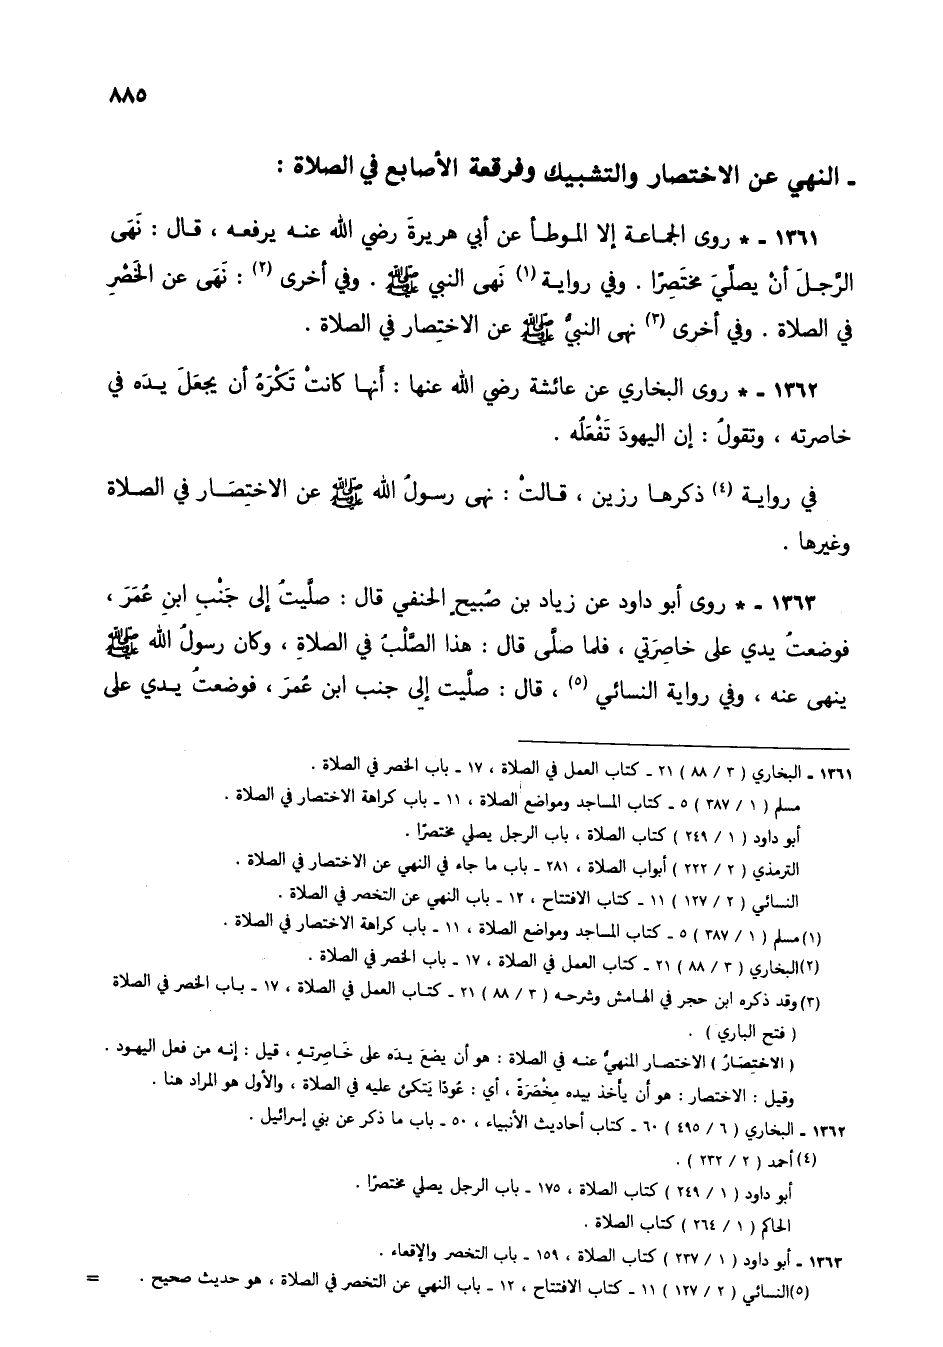 ٨٨٥
ـ النهي عن الاختصار والتشبيك وفرقعة الأصابع في الصلاة :
١٣٦١ ـ * روى الجماعة إلا الموطأ عن أبي هريرةَ رضي الله عنه يرفعه ، قال : نَهَى
الرَّجلَ أنْ يصلّيَ مختَصِرًا . وفي رواية (١) نَهى النبي ﷺ . وفي أخرى (٢) : نَهَى عن الخَصْرِ
في الصلاة . وفي أخرى (٣) نهى النبيُّ ﷺ عن الاختِصار في الصلاة .
١٣٦٢ ـ * روى البخاري عن عائشة رضي الله عنها : أَنها كانتْ تَكْرَهُ أن يجعَلَ يدَه في
خاصرته ، وتقولُ : إن اليهودَ تَفْعَلُه .
في رواية (٤) ذكرها رزين ، قالتْ : نهى رسولُ الله ﷺ عن الاختِصَار في الصلاة
وغيرها .
١٣٦٣ ـ * روى أبو داود عن زياد بن صُبيحٍ الحنفي قال : صلَّيتُ إلى جَنْبِ ابنِ عُمَرَ ،
فوضعتُ يدي على خاصِرَتي ، فلما صلَّى قال : هذا الصَّلْبُ في الصلاةِ ، وكان رسولُ الله ﷺ
ينهى عنه ، وفي رواية النسائي (٥) ، قال : صلَّيت إلى جنب ابن عُمرَ ، فوضعتُ يدي على
١٣٦١ ـ البخاري ( ٣ / ٨٨ ) ٢١ ـ كتاب العمل في الصلاة ، ١٧ ـ باب الخصر في الصلاة .
مسلم ( ١ / ٣٨٧ ) ٥ ـ كتاب المساجد ومواضع الصلاة ، ١١ ـ باب كراهة الاختصار في الصلاة .
أبو داود ( ١ / ٢٤٩ ) كتاب الصلاة ، باب الرجل يصلي مختصرًا .
الترمذي ( ٢ / ٢٢٢ ) أبواب الصلاة ، ٢٨١ ـ باب ما جاء في النهي عن الاختصار في الصلاة .
النسائي ( ٢ / ١٢٧ ) ١١ ـ كتاب الافتتاح ، ١٢ ـ باب النهي عن التخصر في الصلاة .
(١) مسلم ( ١ / ٣٨٧ ) ٥ ـ كتاب المساجد ومواضع الصلاة ، ١١ ـ باب كراهة الاختصار في الصلاة .
(٢) البخاري ( ٣ / ٨٨ ) ٢١ ـ كتاب العمل في الصلاة ، ١٧ ـ باب الخصر في الصلاة .
(٣) وقد ذكره ابن حجر في الهامش وشرحه ( ٣ / ٨٨ ) ٢١ ـ كتاب العمل في الصلاة ، ١٧ ـ باب الخصر في الصلاة
( فتح الباري ) .
( الاختِصَارُ ) الاختصار المنهيُّ عنه في الصلاة : هو أن يضعَ يدَه على خَاصِرتهِ ، قيل : إنه من فعل اليهود .
وقيل : الاختصار : هو أن يأخذ بيده مِخْصَرَةً ، أي : عُودًا يَتكئ عليه في الصلاة ، والأول هو المراد هنا .
١٣٦٢ ـ البخاري ( ٦ / ٤٩٥ ) ٦٠ ـ كتاب أحاديث الأنبياء ، ٥٠ ـ باب ما ذكر عن بني إسرائيل .
(٤) أحمد ( ٢ / ٢٣٢ ) .
أبو داود ( ١ / ٢٤٩ ) كتاب الصلاة ، ١٧٥ ـ باب الرجل يصلي مختصرًا .
الحاكم ( ١ / ٢٦٤ ) كتاب الصلاة .
١٣٦٣ ـ أبو داود ( ١ / ٢٣٧ ) كتاب الصلاة ، ١٥٩ ـ باب التخصر والإقعاء .
(٥) النسائي ( ٢ / ١٢٧ ) ١١ ـ كتاب الافتتاح ، ١٢ ـ باب النهي عن التخصر في الصلاة ، هو حديث صحيح . =